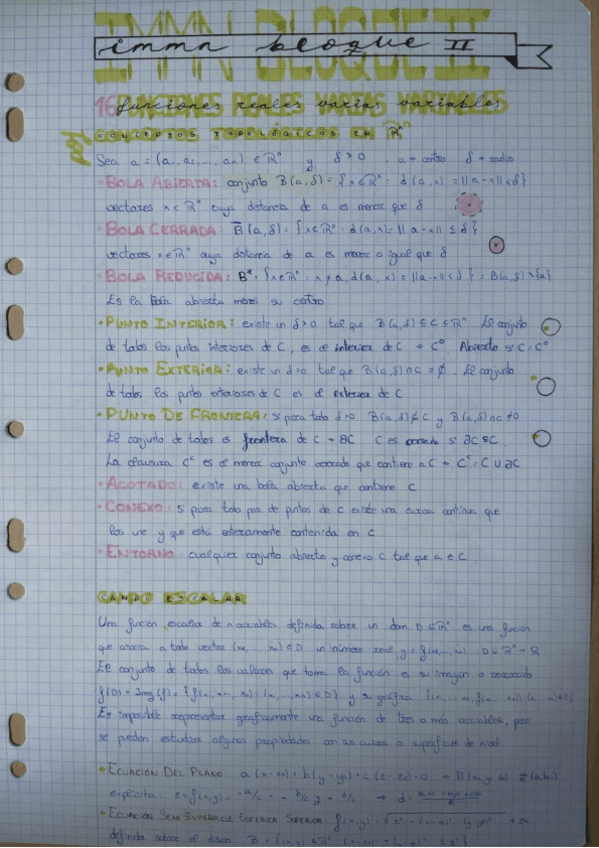 IMMN BLOQUE II
immn bloque II
16 FUNCIONES REALES VARIAS VARIABLES
funciones reales varias variables
CONCEPTOS TOPOLÓGICOS EN ℝⁿ
Sea a = (a₁, a₂, ..., aₙ) ∈ ℝⁿ y δ > 0 a → centro δ → radio
• BOLA ABIERTA: conjunto B(a,δ) = {x ∈ ℝⁿ : d(a,x) = ||a-x|| < δ}
vectores x ∈ ℝⁿ cuya distancia de a es menor que δ
• BOLA CERRADA: B̄(a,δ) = {x ∈ ℝⁿ : d(a,x) = ||a-x|| ≤ δ}
vectores x ∈ ℝⁿ cuya distancia de a es menor o igual que δ
• BOLA REDUCIDA: B* = {x ∈ ℝⁿ : x ≠ a, d(a,x) = ||a-x|| < δ} = B(a,δ) \ {a}
Es la bola abierta menos su centro
• PUNTO INTERIOR: existe un δ>0 tal que B(a,δ) ⊆ C ⊆ ℝⁿ. El conjunto
de todos los puntos interiores de C, es el interior de C → C°. Abierto si C = C°
• PUNTO EXTERIOR: existe un δ>0 tal que B(a,δ) ∩ C = ∅. El conjunto
de todos los puntos exteriores de C es el exterior de C
• PUNTO DE FRONTERA: si para todo δ>0 B(a,δ) ⊄ C y B(a,δ) ∩ C ≠ ∅
El conjunto de todos es frontera de C → ∂C. C es cerrado si ∂C ⊆ C
La clausura Cᶜ es el menor conjunto cerrado que contiene a C → Cᶜ = C ∪ ∂C
• ACOTADO: existe una bola abierta que contiene C
• CONEXO: si para todo par de puntos de C existe una curva continua que
los une y que está enteramente contenida en C
• ENTORNO: cualquier conjunto abierto y conexo C tal que a ∈ C
CAMPO ESCALAR
Una función escalar de n variables definida sobre un dom D ⊆ ℝⁿ es una función
que asocia a todo vector (x₁, ..., xₙ) ∈ D un número real y = f(x₁, ..., xₙ) : D ⊆ ℝⁿ → ℝ
El conjunto de todos los valores que toma la función es su imagen o recorrido
f(D) = Img(f) = {f(x₁, x₂, ..., xₙ) : (x₁, ..., xₙ) ∈ D} y su gráfica
Es imposible representar gráficamente una función de tres o más variables, pero
se pueden estudiar algunas propiedades con sus curvas o superficies de nivel.
• ECUACIÓN DEL PLANO: a(x-x₀) + b(y-y₀) + c(z-z₀) = 0
explícita: z = f(x,y) = -a/c x - b/c y + d/c
• ECUACIÓN SEMI SUPERFICIE ESFÉRICA SUPERIOR: f(x,y) =
definida sobre el disco